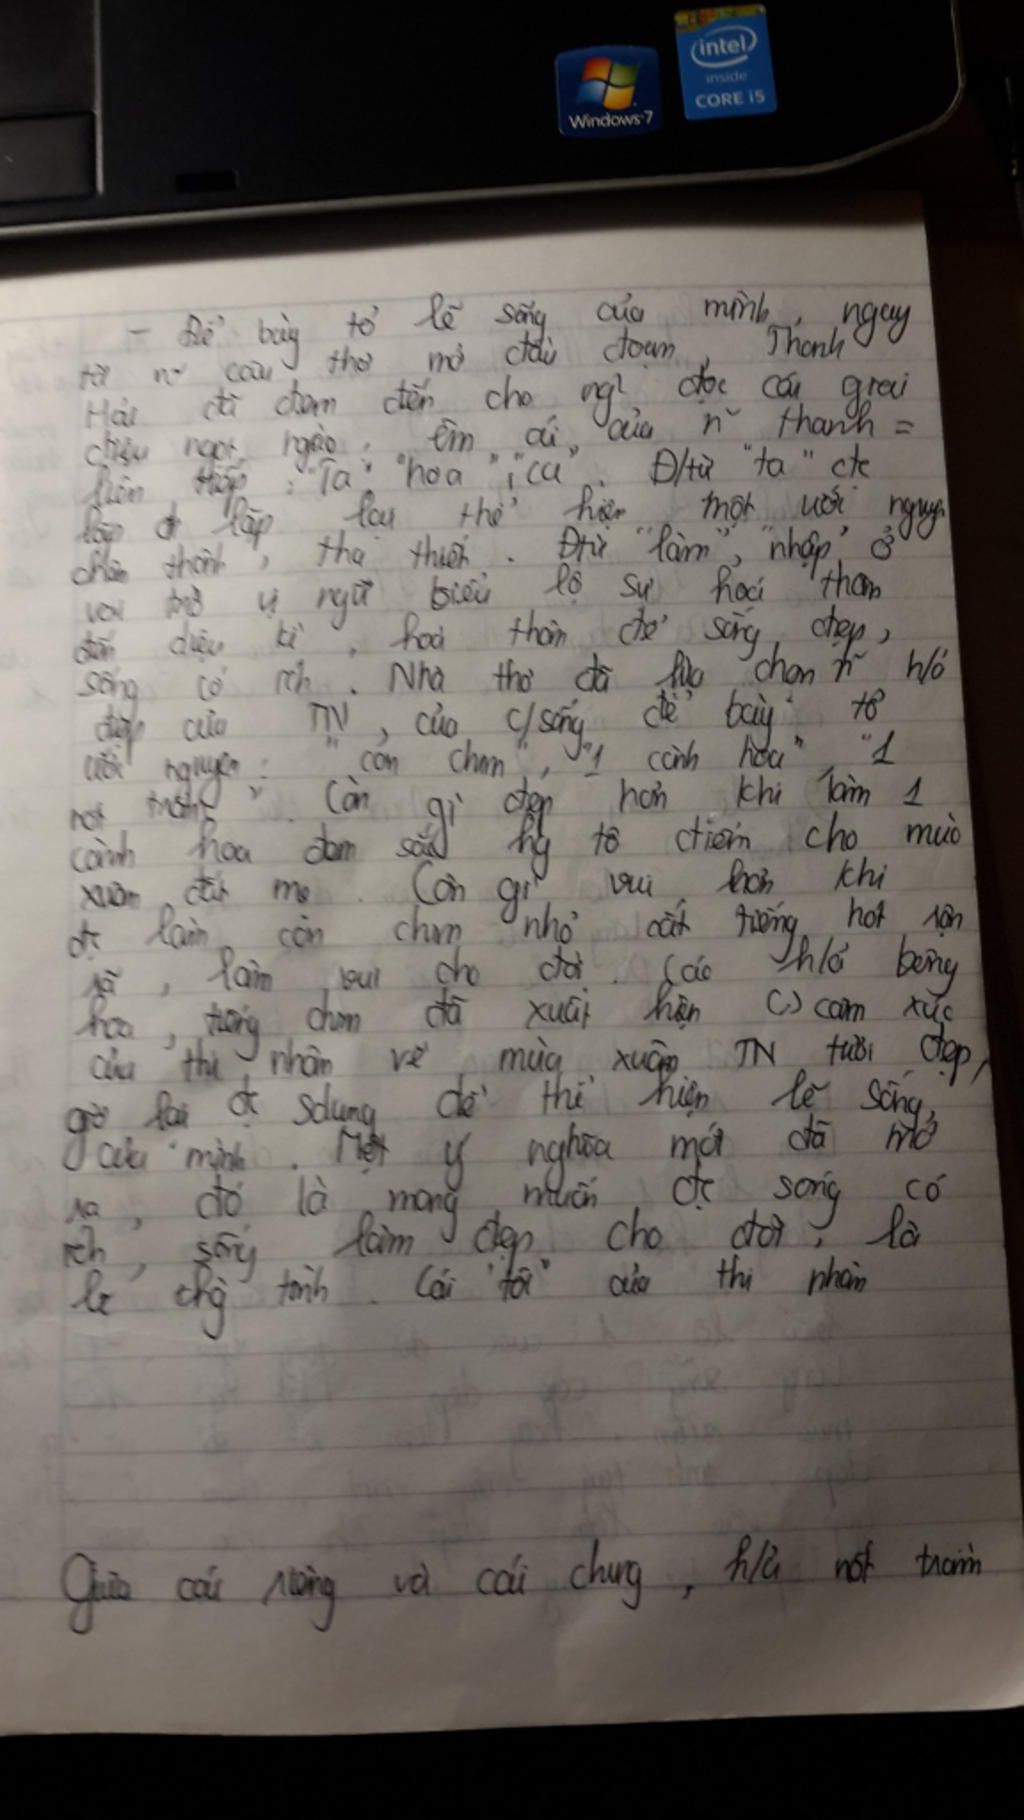 Windows 7
intel
inside
CORE i5
- Để bày tỏ lẽ sống của mình, ngay
từ n~ câu thơ mở đầu đoạn, Thanh
Hải đã đem đến cho ng` đọc cái giai
điệu ngọt ngào, êm ái của n~ thanh =
liên tiếp: "Ta" "hoa", "ca". Đ/từ "ta" đc
lặp đi lặp lại thể hiện một ước nguyện
chân thành, tha thiết. Đtừ "làm", "nhập" ở
vai trò vị ngữ biểu lộ sự hoá thân
đến diệu kì, hoá thân để sống đẹp,
sống có ích. Nhà thơ đã lựa chọn n~ h/ả
đẹp của TN, của c/sống để bày tỏ
ước nguyện: "con chim", "1 cành hoa", "1
nốt trầm". Còn gì đẹp hơn khi làm 1
cành hoa đem sắc hg tô điểm cho mùa
xuân đất mẹ. Còn gì vui hơn khi
đc làm con chim nhỏ cất tiếng hót rộn
rã, làm vui cho đời. Các h/ả bông
hoa, tiếng chim đã xuất hiện cảm xúc
của thi nhân về mùa xuân TN tươi đẹp,
giờ lại đc sdụng để thể hiện lẽ sống
của mình. Một ý nghĩa mới đã mở
ra, đó là mong muốn đc sống có
ích, sống làm đẹp cho đời, là
lẽ thg tình. Cái "tôi" của thi nhân
Giữa cái riêng và cái chung, h/ả nốt trầm